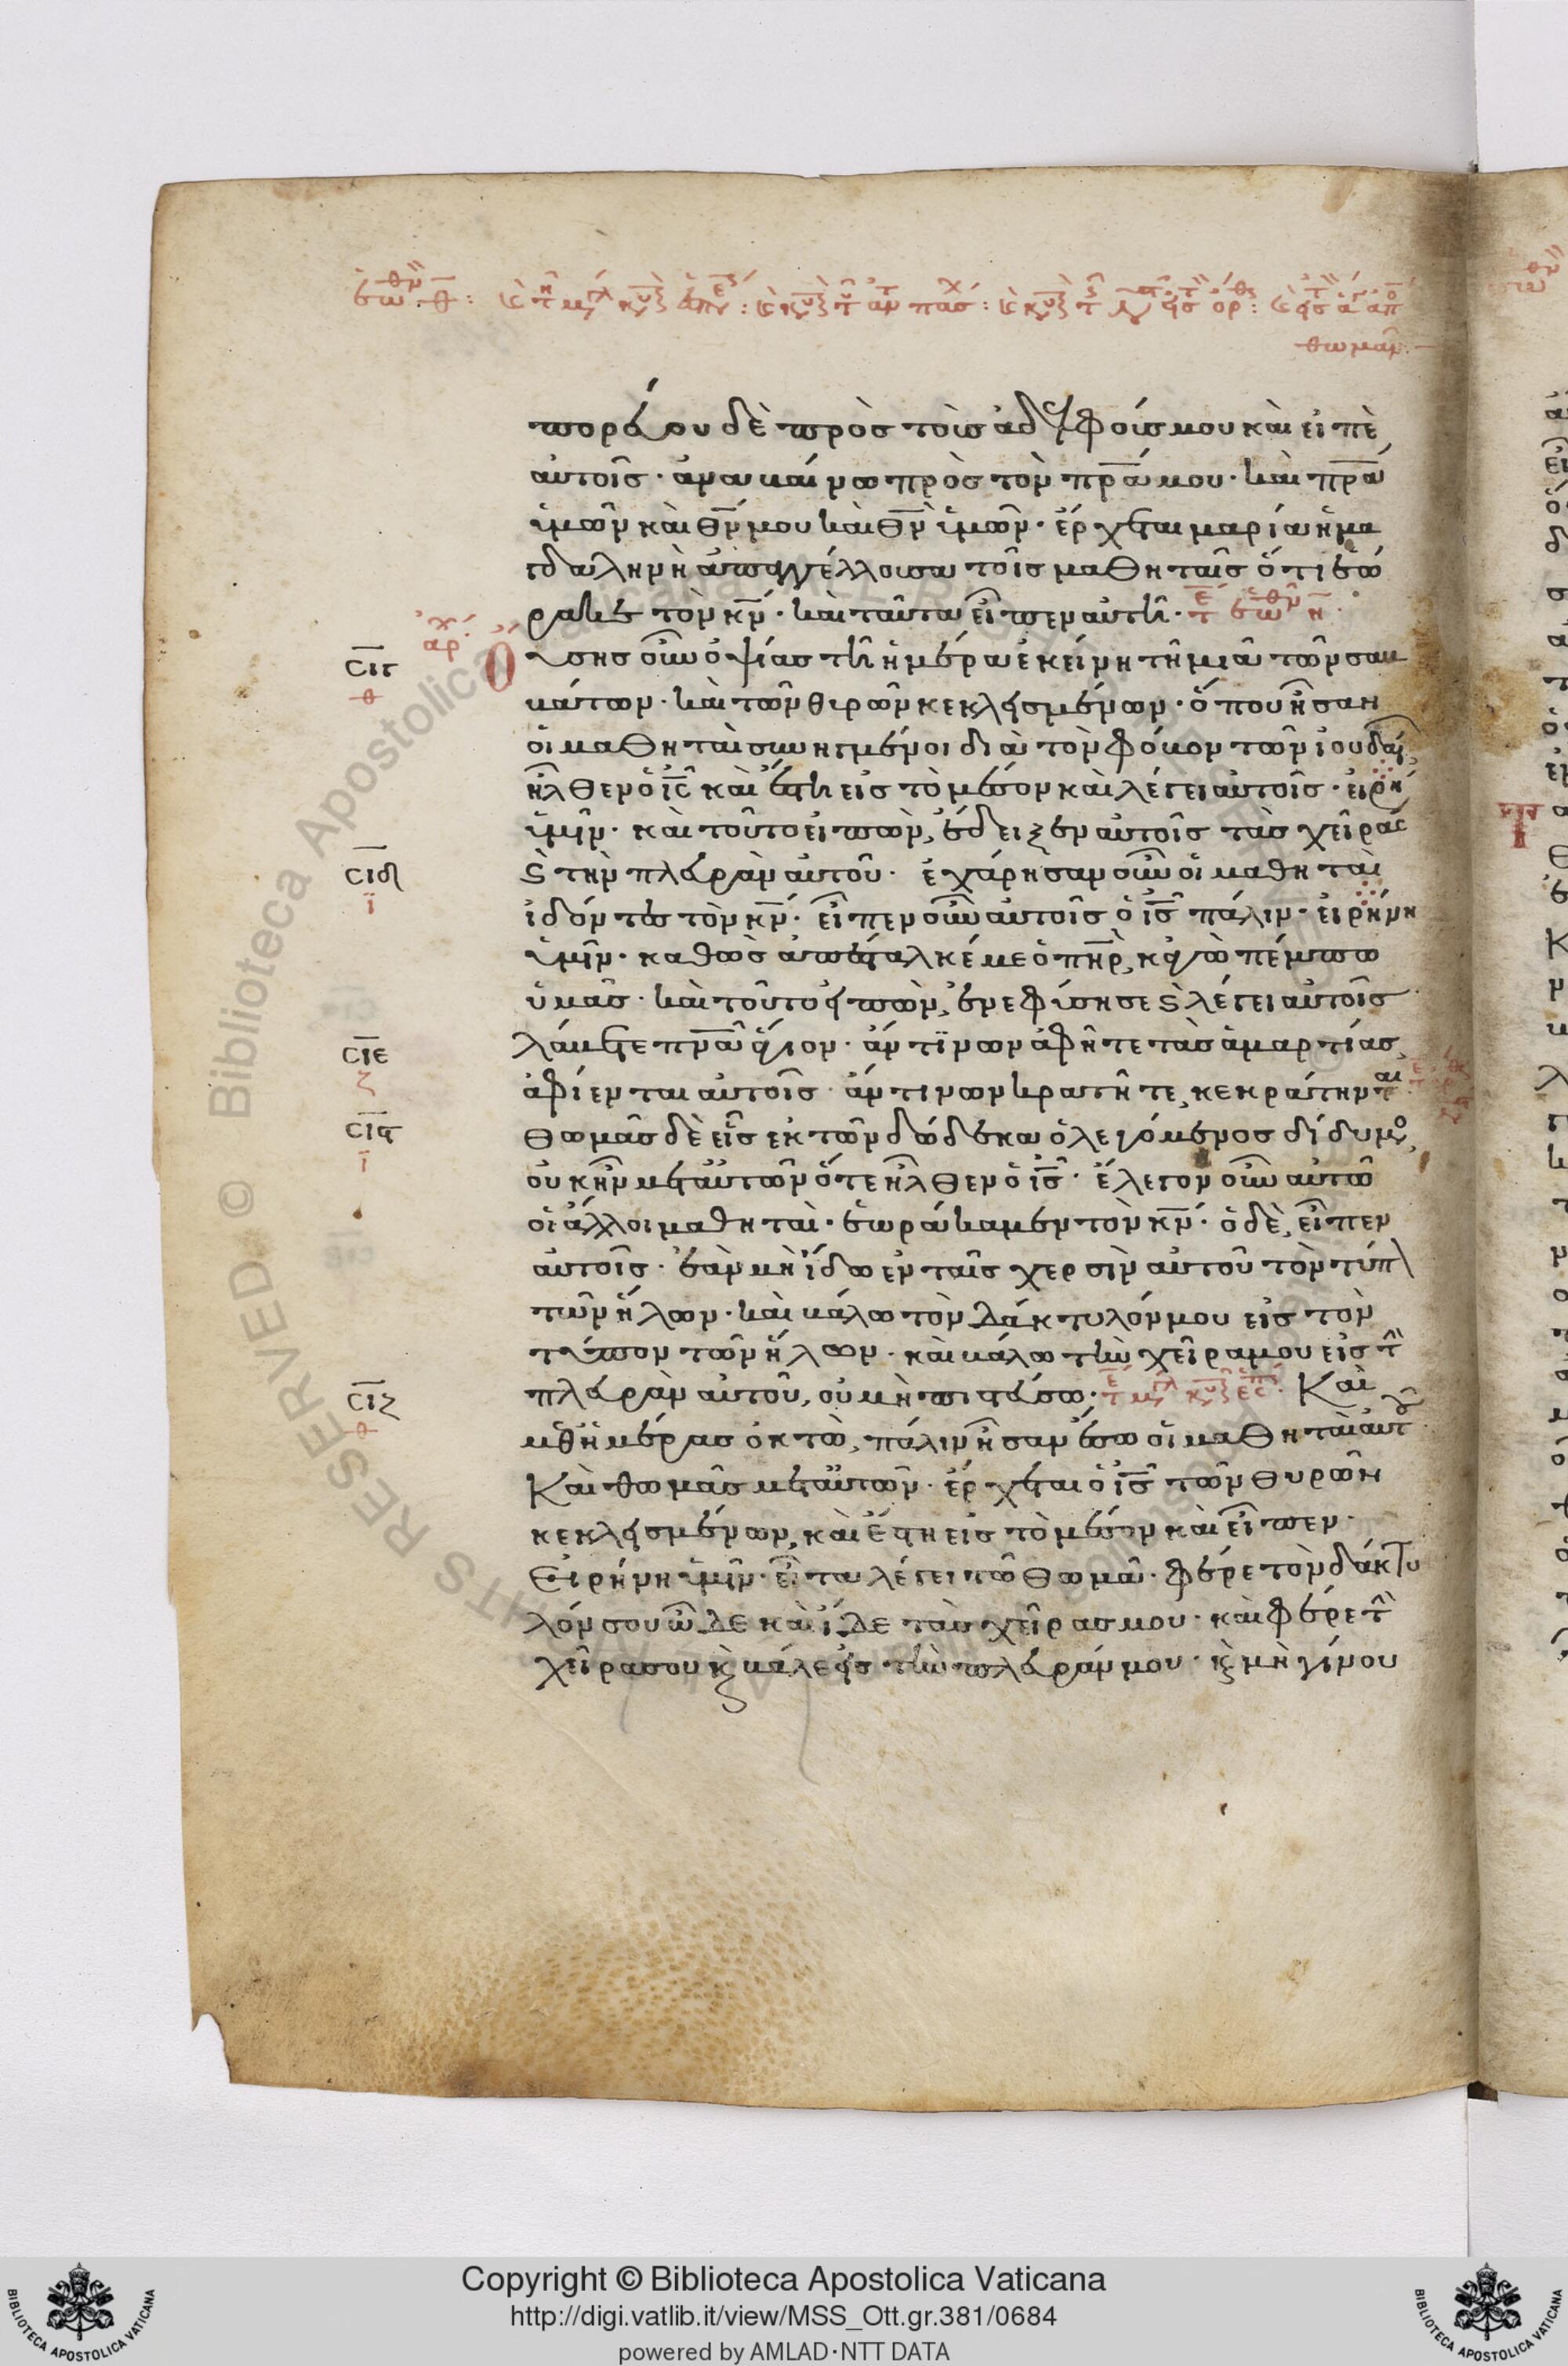 πορεύου δὲ πρὸς τοὺς ἀδελφούς μου καὶ εἰπὲ
αὐτοῖς· ἀναβαίνω πρὸς τὸν πρ̅α μου· καὶ πρ̅α
ὑμῶν καὶ θν̅ μου καὶ θν̅ ὑμῶν· ἔρχεται μαρία ἡ μα
γδαληνὴ ἀπαγγέλλουσα τοῖς μαθηταῖς ὅτι ἑώ
ρακε τὸν κν̅· καὶ ταῦτα εἶπεν αὐτῆ·
σιγ
θ
Οὔσης οὖν ὀψίας τῆ ἡμέρα ἐκείνη τῆ μιᾶ τῶν σαβ
βάτων· καὶ τῶν θυρῶν κεκλεισμένων· ὅπου ἦσαν
οἱ μαθηταὶ συνηγμένοι διὰ τὸν φόβον τῶν ἰουδαί
ἦλθεν ὁ ις̅ καὶ ἔστη εἰς τὸ μέσον καὶ λέγει αὐτοῖς· εἰρή
ὑμῖν· καὶ τοῦτο εἰπὼν, ἔδειξεν αὐτοῖς τὰς χεῖρας
σιδ
ι
ϛ τὴν πλευρὰν αὐτοῦ· ἐχάρησαν οὖν οἱ μαθηταὶ
ἰδόντες τὸν κν̅· εἶπεν οὖν αὐτοῖς ὁ ις̅ πάλιν· εἰρήνη
ὑμῖν· καθὼς ἀπέσταλκέ με ὁ πηρ̅, κἀγὼ πέμπω
ὑμᾶς· καὶ τοῦτο εἰπὼν, ἐνεφύσησε ϛ λέγει αὐτοῖς
σιε
ζ
λάβετε πνα̅ ἅγιον· ἄν τινων ἀφῆτε τὰς ἁμαρτίας,
ἀφίενται αὐτοῖς· ἄν τινων κρατῆτε, κεκράτηνται
σιϛ
ι
Θωμᾶς δὲ εἷς ἐκ τῶν δώδεκα ὁ λεγόμενος δίδυμο,
οὐκ ἦν μετ' αὐτῶν ὅτε ἦλθεν ὁ ις̅· ἔλεγον οὖν αὐτῶ
οἱ ἄλλοι μαθηταὶ· ἑωράκαμεν τὸν κν̅· ὁ δὲ, εἶπεν
αὐτοῖς· ἐὰν μὴ ἴδω ἐν ταῖς χερσὶν αὐτοῦ τὸν τύπ
τῶν ἥλων· καὶ βάλω τὸν δάκτυλόν μου εἰς τὸν
τύπον τῶν ἥλων· καὶ βάλω τὴν χεῖρα μου εἰς τ
σιζ
θ
πλευρὰν αὐτοῦ, οὐ μὴ πιστεύσω· Καὶ
μεθ' ἡμέρας ὀκτὼ, πάλιν ἦσαν ἔσω οἱ μαθηταὶ αὐτοῦ
Καὶ θωμᾶς μετ' αὐτῶν· ἔρχεται ὁ ις̅ τῶν θυρῶν
κεκλεισμένων, καὶ ἔστη εἰς τὸ μέσον καὶ εἶπεν·
Εἰρήνη ὑμῖν· εἶτα λέγει τῶ θωμᾶ· φέρε τὸν δάκτυ
λόν σου ὧδε καὶ ἴδε τὰς χεῖρας μου· καὶ φέρε τ
χεῖρα σου κ βάλε εἰς τὴν πλευράν μου· κ μὴ γίνου
© Biblioteca Apostolica Vaticana
Copyright © Biblioteca Apostolica Vaticana
http://digi.vatlib.it/view/MSS_Ott.gr.381/0684
powered by AMLAD·NTT DATA
BIBLIOTECA APOSTOLICA VATICANA
BIBLIOTECA APOSTOLICA VATICANA